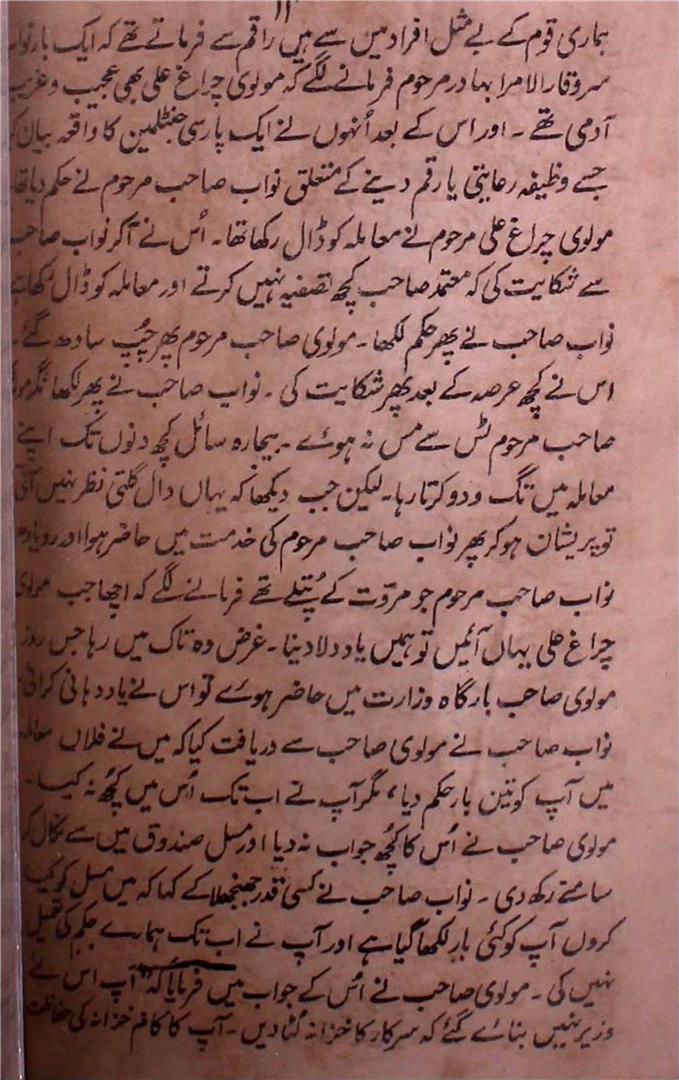 ۱۱
ہماری قوم کے بے مثل افراد مین سے ہیں راقم سے فرماتے تھے کہ ایک بار نواب
سر وقار الامرا بہادر مرحوم فرمانے لگے کہ مولوی چراغ علی بھی عجیب و غریب
آدمی تھے ۔ اور اس کے بعد اُنہوں نے ایک پارسی جنٹلمین کا واقعہ بیان کیا
جسے وظیفہ رعایتی یا رقم دینے کے متعلق نواب صاحب مرحوم نے حکم دیا تھا
مولوی چراغ علی مرحوم نے معاملہ کو ڈال رکھا تھا۔ اُس نے آکر نواب صاحب
سے شکایت کی کہ معتمد صاحب کچھ تصفیہ نہیں کرتے اور معاملہ کو ڈال رکھا ہے
نواب صاحب نے پھر حکم لکھا ۔ مولوی صاحب مرحوم پھر چُپ سادھ گئے۔
اس نے کچھ عرصہ کے بعد پھر شکایت کی ۔ نواب صاحب نے پھر لکھا مگر
صاحب مرحوم ٹس سے مس نہ ہوئے ۔ بیچارہ سائل کچھ دنوں تک اپنے
معاملہ میں تگ ودو کرتا رہا۔ لیکن جب دیکھا کہ یہاں دال گلتی نظر نہیں آتی
تو پریشان ہوکر پھر نواب صاحب مرحوم کی خدمت میں حاضر ہوا اور رویا
نواب صاحب مرحوم جو مروّت کے پُتلے تھے فرمانے لگے کہ اچھا جب مولوی
چراغ علی یہاں آئیں تو ہمیں یاد دلا دینا ۔ غرض وہ تاک میں رہا جس روز
مولوی صاحب بارگاہ وزارت میں حاضر ہوئے تو اس نے یاد دہانی کرائی۔
نواب صاحب نے مولوی صاحب سے دریافت کیا کہ میں نے فلاں معاملہ
میں آپ کو تین بار حکم دیا ، مگر آپ نے اب تک اُس میں کچُھ نہ کیا ۔
مولوی صاحب نے اُس کا کچُھ جواب نہ دیا اور مسل صندوق میں سے نکال کر
سامنے رکھ دی ۔ نواب صاحب نے کسی قدر جھنجھلا کے کہا کہ میں مسل کو کیا
کروں آپ کو کئی بار لکھا گیا ہے اور آپ نے اب تک ہمارے حکم کی تعمیل
نہیں کی ۔ مولوی صاحب نے اُس کے جواب میں فرمایا کہ ”آپ اس لئے
وزیر نہیں بنائے گئے کہ سرکار کا خزانہ لُٹا دیں ۔ آپ کا کام خزانہ کی حفاظت